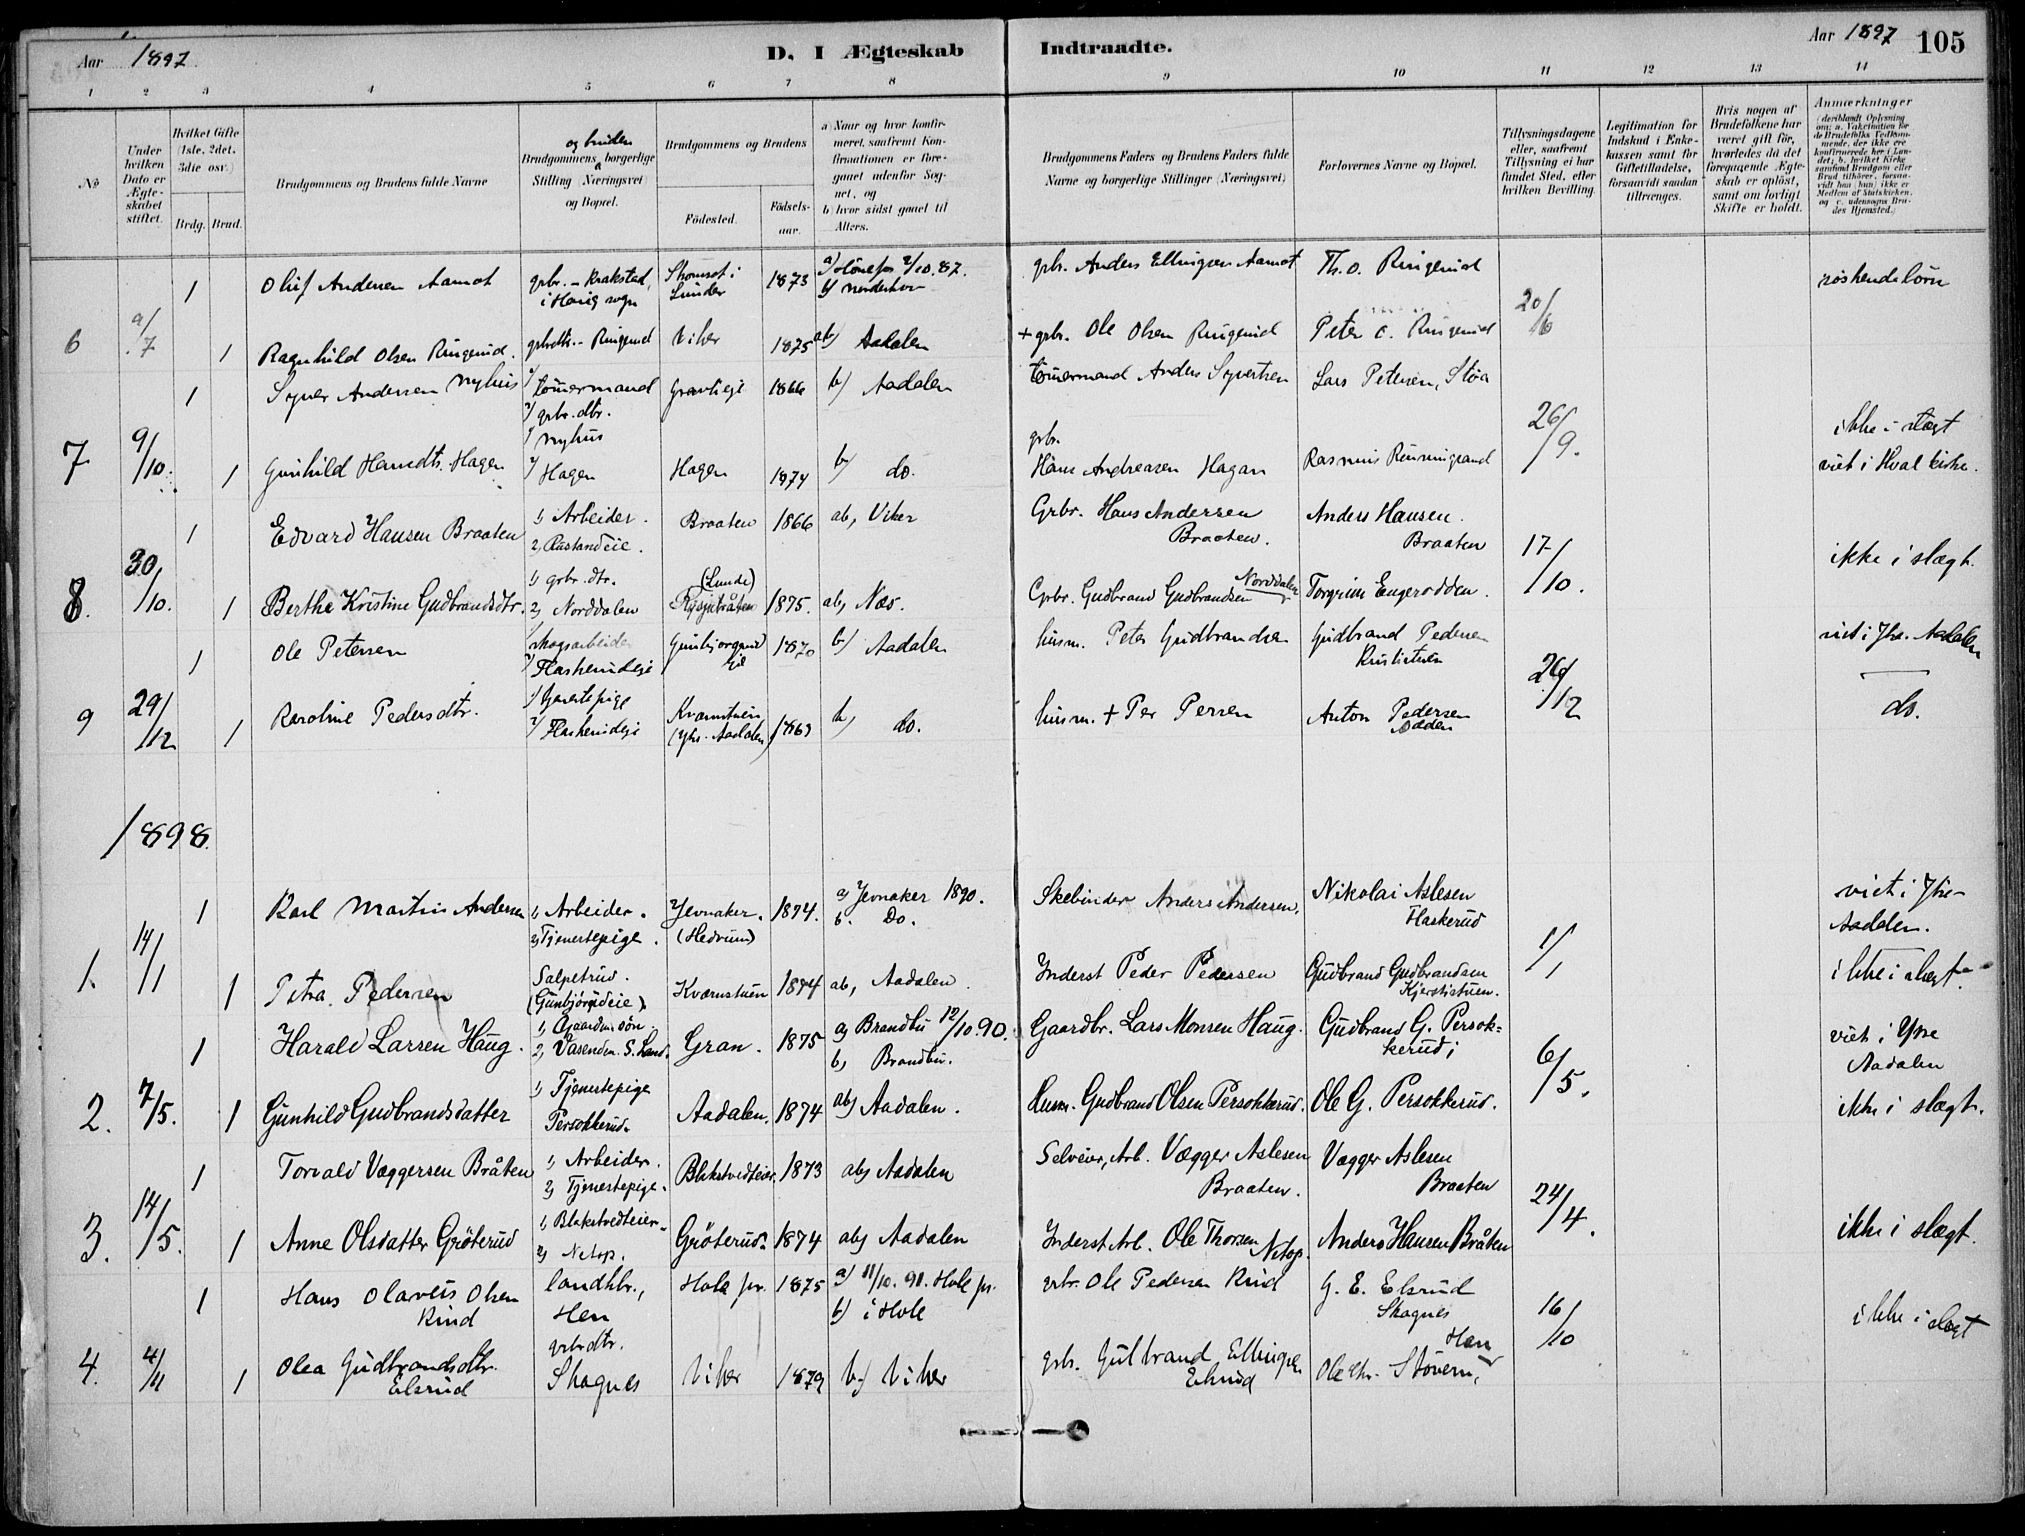 Aar 1897
D. I Ægteskab Indtraadte.
Aar 1897 105
1 2 3 4 5 6 7 8 9 10 11 12 13 14
No
Under hvilken Dato er Ægteskabet stiftet.
Hvilket Gifte (1ste, 2det, 3die osv.)
Brdg. Brud.
Brudgommens og Brudens fulde Navne
og bruden
Brudgommens borgerlige Stilling (Næringsvei) og Bopæl.
Brudgommens og Brudens
Fødested.
Fødselsaar.
a) Naar og hvor konfirmeret, saafremt Konfirmationen er foregaaet udenfor Sognet, og
b) hvor sidst gaaet til Alters.
Brudgommens Faders og Brudens Faders fulde Navne og borgerlige Stillinger (Næringsvei)
Forlovernes Navne og Bopæl.
Tillysningsdagene eller, saafremt Tillysning ei har fundet Sted, efter hvilken Bevilling.
Legitimation for Indskud i Enkekassen samt for Giftetilladelse, forsaavidt saadan tiltrænges.
Hvis nogen af Brudefolkene har været gift før, hvorledes da det foregaaende Ægteskab er opløst, samt om lovligt Skifte er holdt.
Anmærkninger
(deriblandt Oplysning om: a. Vaksination for de Brudefolks Vedkommende, der ikke ere konfirmerede her i Landet; b. hvilket Kirkesamfund Brudgom eller Brud tilhører, forsaavidt han (hun) ikke er Medlem af Statskirken, og c. udensogns Brudes Hjemsted.)
1 Oluf Andersen Aamot grbr. - Krakstad, i Haug sogn Lunder 1873 a) Hönefos 2/10.87. b) Norderhov grbr. Anders Ellingsen Aamot Th. O. Ringerud søskendebörn
6 9/7 20/6
1 Ragnhild Olsen Ringerud. grbrdtr. - Ringerud Viker 1875 ab) Aadalen + grbr. Ole Olsen Ringerud Peter O. Ringerud
1 Syver Andersen Nyhus 1) Tömermand 2) grbr. dtr. 1866 b) Aadalen Tömermand Anders Syvertsen Lars Petersen, Stöa
7 9/10. 26/9. ikke i slægt
1 Gunhild Hansdtr. Hagen 1) Nyhus 2) Hagen Hagen 1874 b) do. grbr. Hans Andreasen Hagan Rasmus viet i Hval kirke.
1 Edvard Hansen Braaten 1) Arbeider. 2) Rustandeie. Braaten 1866 ab, Viker Grbr. Hans Andersen Braaten. Anders Hansen. Braaten
8. 30/10. 17/10. ikke i slægt.
1 Berthe Kristine Gudbrandsdtr. 1) grbr. dtr. 2) Norddalen (Lunde) 1875. ab, Næs. Grbr. Gudbrand Gudbrandsen Norddalen Torgrim Engerodden.
1 Ole Petersen skogsarbeider 2) Flaskerudeie Gunbjørgrud eie 1870 b) Aadalen husm. Peter Gudbrandsen Gudbrand Pedersen viet i Ytre. Aadalen
9 29/12 26/12
1 Karoline Pedersdtr. 1) tjenestepige 2) Flaskerudeie Kværnstuen (Ytr. Aadalen) 1863 b) do. husm. + Per Persen Anton Pedersen Odden do.
1898.
1 Karl Martin Andersen 1) Arbeider. 2) Tjenestepige. Jevnaker. (Hedrum) 1874. a) Jevnaker 1890. b. Do. Skebinder Anders Andersen. Nikolai Aslesen Flaskerud viet i Ytre Aadalen.
1. 14/1 1/1
1 Petra Pedersen Salpetrud. (Gunbjörgrudeie) Kværnstuen 1874 ab, Aadalen. Inderst Peder Pedersen Gudbrand Gudbrandsen Kjerstistuen. ikke i slægt.
1 Harald Larsen Haug. 1) Gaardm. sön 2) Vasenden. S. Land. Gran. 1875 a) Brandbu 12/10 90. b) Brandbu. Gaardbr. Lars Monsen Haug. Gudbrand G. Persokkerud; viet i Ytre Aadalen
2. 7/5. 6/5.
1 Gunhild Gudbrandsdatter 1) Tjenestepige Persokkerud. Aadalen. 1874 ab) Aadalen. Husm. Gudbrand Olsen Persokkerud. Ole G. Persokkerud. ikke i slægt.
1 Torvald Væggersen Bråten 1) Arbeider. 2) Tjenestepige. Blakstvedteier. 1873 ab) Aadalen Selveier, Arb. Vægger Aslesen Braaten. Vægger Aslesen Braaten
3. 14/5. 24/4. ikke i slægt.
1 Anne Olsdatter Gröterud 1) Blakstvedteier. 2) Netop. Gröterud. 1874 ab) Aadalen Inderst Arb. Ole Thorsen Netop. Anders Hansen Bråten
1 Hans Olavus Olsen Rud landhbr., Hen Hole pr. 1875 a) 11/10. 91. Hole pr. b) i Hole grbr. Ole Pedersen Rud G. E. Elsrud Skagnes
4. 4/11 16/10 ikke i slægt
1 Olea Gudbrandsdtr. Elsrud grbrdtr. Skagnes Viker 1879 b) Viker grbr. Gulbrand Ellingsen Elsrud Ole Chr. Støvern, Hen